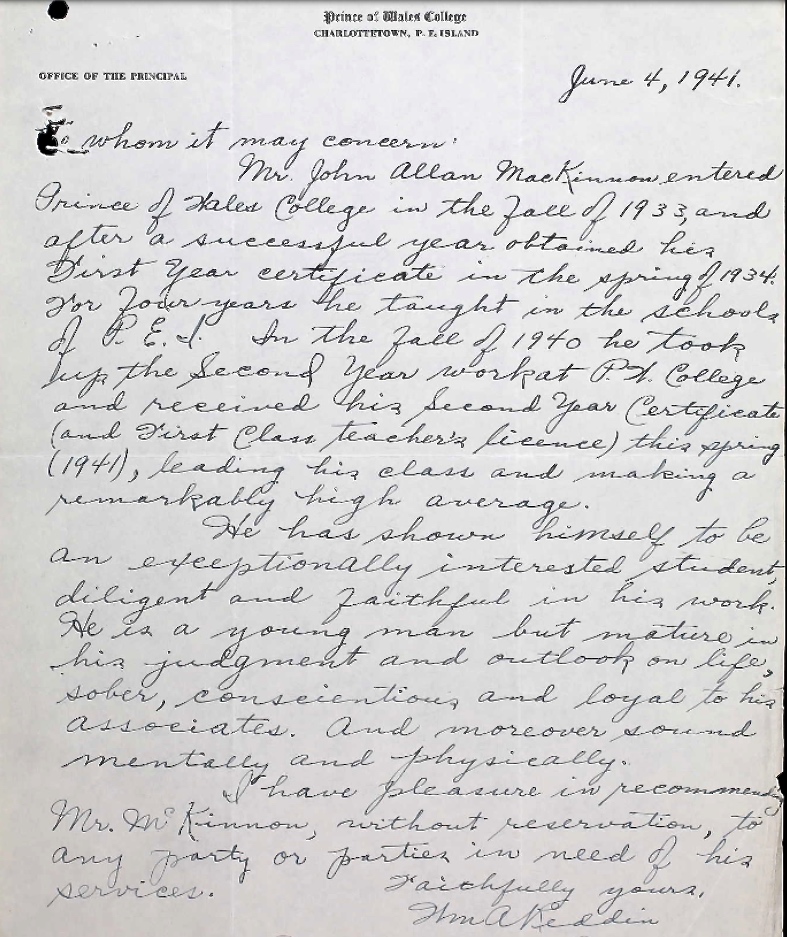 Prince of Wales College
CHARLOTTETOWN, P. E. ISLAND
OFFICE OF THE PRINCIPAL
June 4, 1941.
To whom it may concern:
Mr. John Allan MacKinnon entered
Prince of Wales College in the Fall of 1933, and
after a successful year obtained his
First Year certificate in the spring of 1934.
For Four years he taught in the schools
of P. E. I. In the Fall of 1940 he took
up the Second Year work at P.W. College
and received his Second Year Certificate
(and First Class teacher's licence) this spring
(1941), leading his class and making a
remarkably high average.
He has shown himself to be
an exceptionally interested student,
diligent and faithful in his work.
He is a young man but mature in
his judgment and outlook on life,
sober, conscientious and loyal to his
associates. And moreover sound
mentally and physically.
I have pleasure in recommending
Mr. McKinnon, without reservation, to
any party or parties in need of his
services.
Faithfully yours,
Wm A Reddin